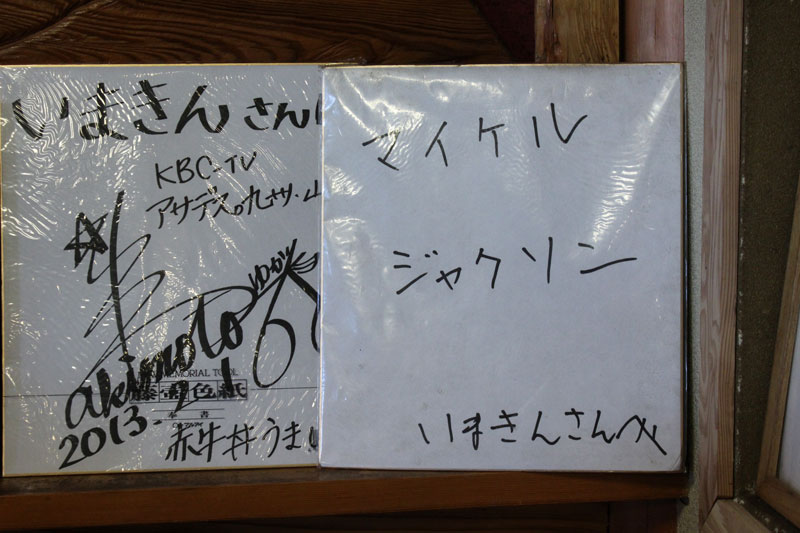 いまきん さん
KBC-TV
アサデス。九州・山
ゆかり
akimoto
MEMORIAL
色紙
奉書
2013.
赤牛丼うま
マイケル
ジャクソン
いまきんさんへ